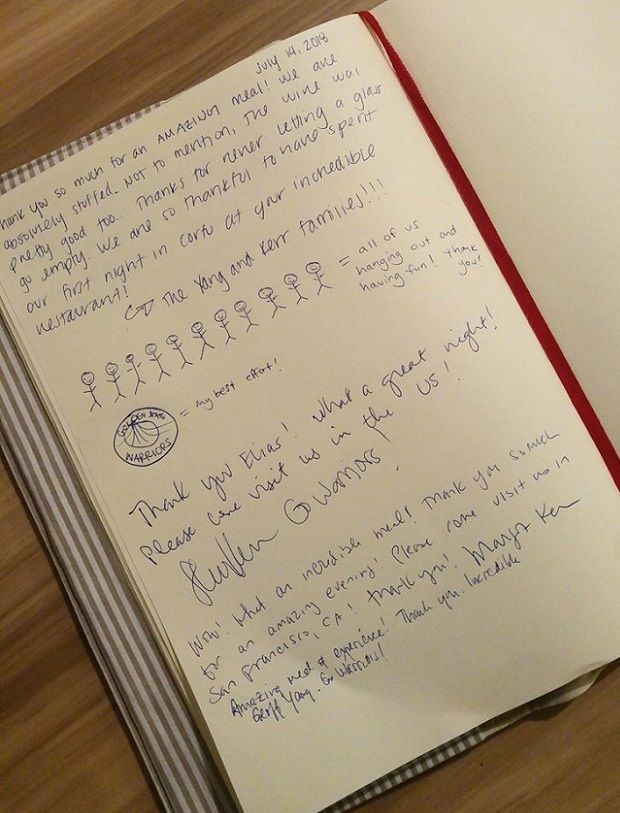 July 14, 2018
Thank you so much for an AMAZING meal! We are
absolutely stuffed. NOT to mention, the wine was
pretty good too.. Thanks for never letting a glass
go empty. We are so thankful to have spent
our first night in Corfu at your incredible
restaurant!
The Yang and Kerr families!!!
= all of us
hanging out and
having fun! Thank
you!
GOLDEN STATE
WARRIORS
= my best effort!
Thank you Elias! What a great night!
Please come visit us in the US!
Go Warriors!
Wow! What an incredible meal! Thank you so much
for an amazing evening! Please come visit us in
San Francisco, CA! Thank you! Margot Kerr
Amazing meal & experience! Thank you. Incredible
Geoff Yang. Go Warriors!